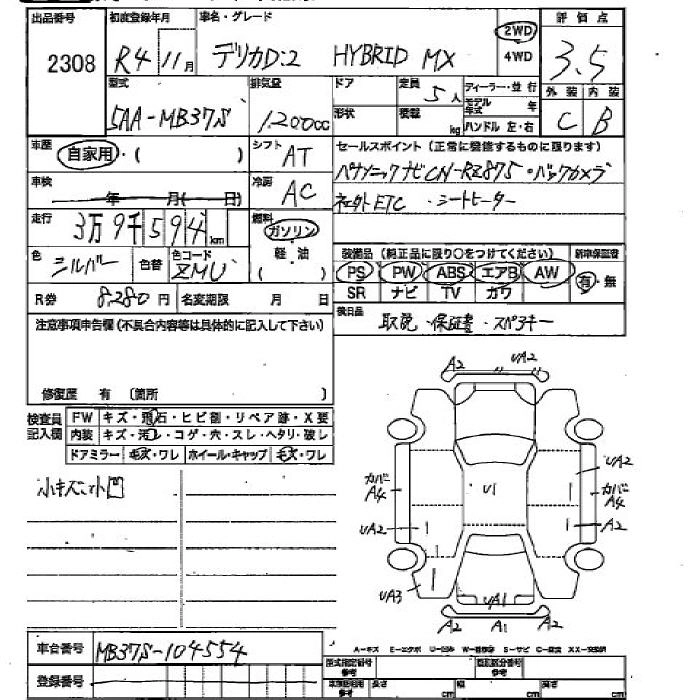 出品番号 初度登録年月 車名・グレード 評価点
2308 R4 11月 デリカD:2 HYBRID MX 2WD 4WD 3.5
型式 排気量 ドア 定員 ディーラー・並行 外装 内装
5AA-MB37S 1,200cc 5人 モデル年式 年 C B
形状 積載 kg ハンドル 左・右
車歴 自家用・( ) シフト AT セールスポイント(正常に機能するものに限ります)
パナソニックナビCN-RZ875・バックカメラ
車検 年 月( 日) 冷房 AC 社外ETC ・シートヒーター
走行 3万9千594km 燃料 ガソリン
軽・油
( )
装備品(純正品に限り○をつけてください) 新車保証書
色 シルバー 色替 色コード ZMU PS PW ABS エアB AW 有・無
SR ナビ TV カワ
R券 8,280円 名変期限 月 日
後日品 取説・保証書・スペアキー
注意事項申告欄(不具合内容等は具体的に記入して下さい)
修復歴 有 〔箇所 〕
検査員記入欄
FW キズ・飛石・ヒビ割・リペア跡・X要
内装 キズ・汚レ・コゲ・穴・スレ・ヘタリ・破レ
ドアミラー キズ・ワレ ホイール・キャップ キズ・ワレ
小キズ小凹
A2 UA2
UA2
カバーA4 U1 カバーA4
UA2 A2
UA3 UA1
A2 A1 A2
A-キズ E-エクボ U-凹み W-補修跡 S-サビ C-腐食 XX-交換済
車台番号 MB37S-104554
型式指定番号 参考 類別区分番号 参考
登録番号
長さ cm 幅 cm 高さ cm